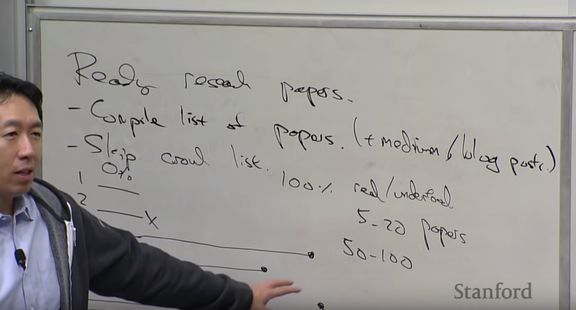 Ready researh papers.
- Compile list of papers. (+ medium/blog posts.)
- Skip around list.
0% 100% read/understand
1
2 X
5-20 papers
50-100
Stanford